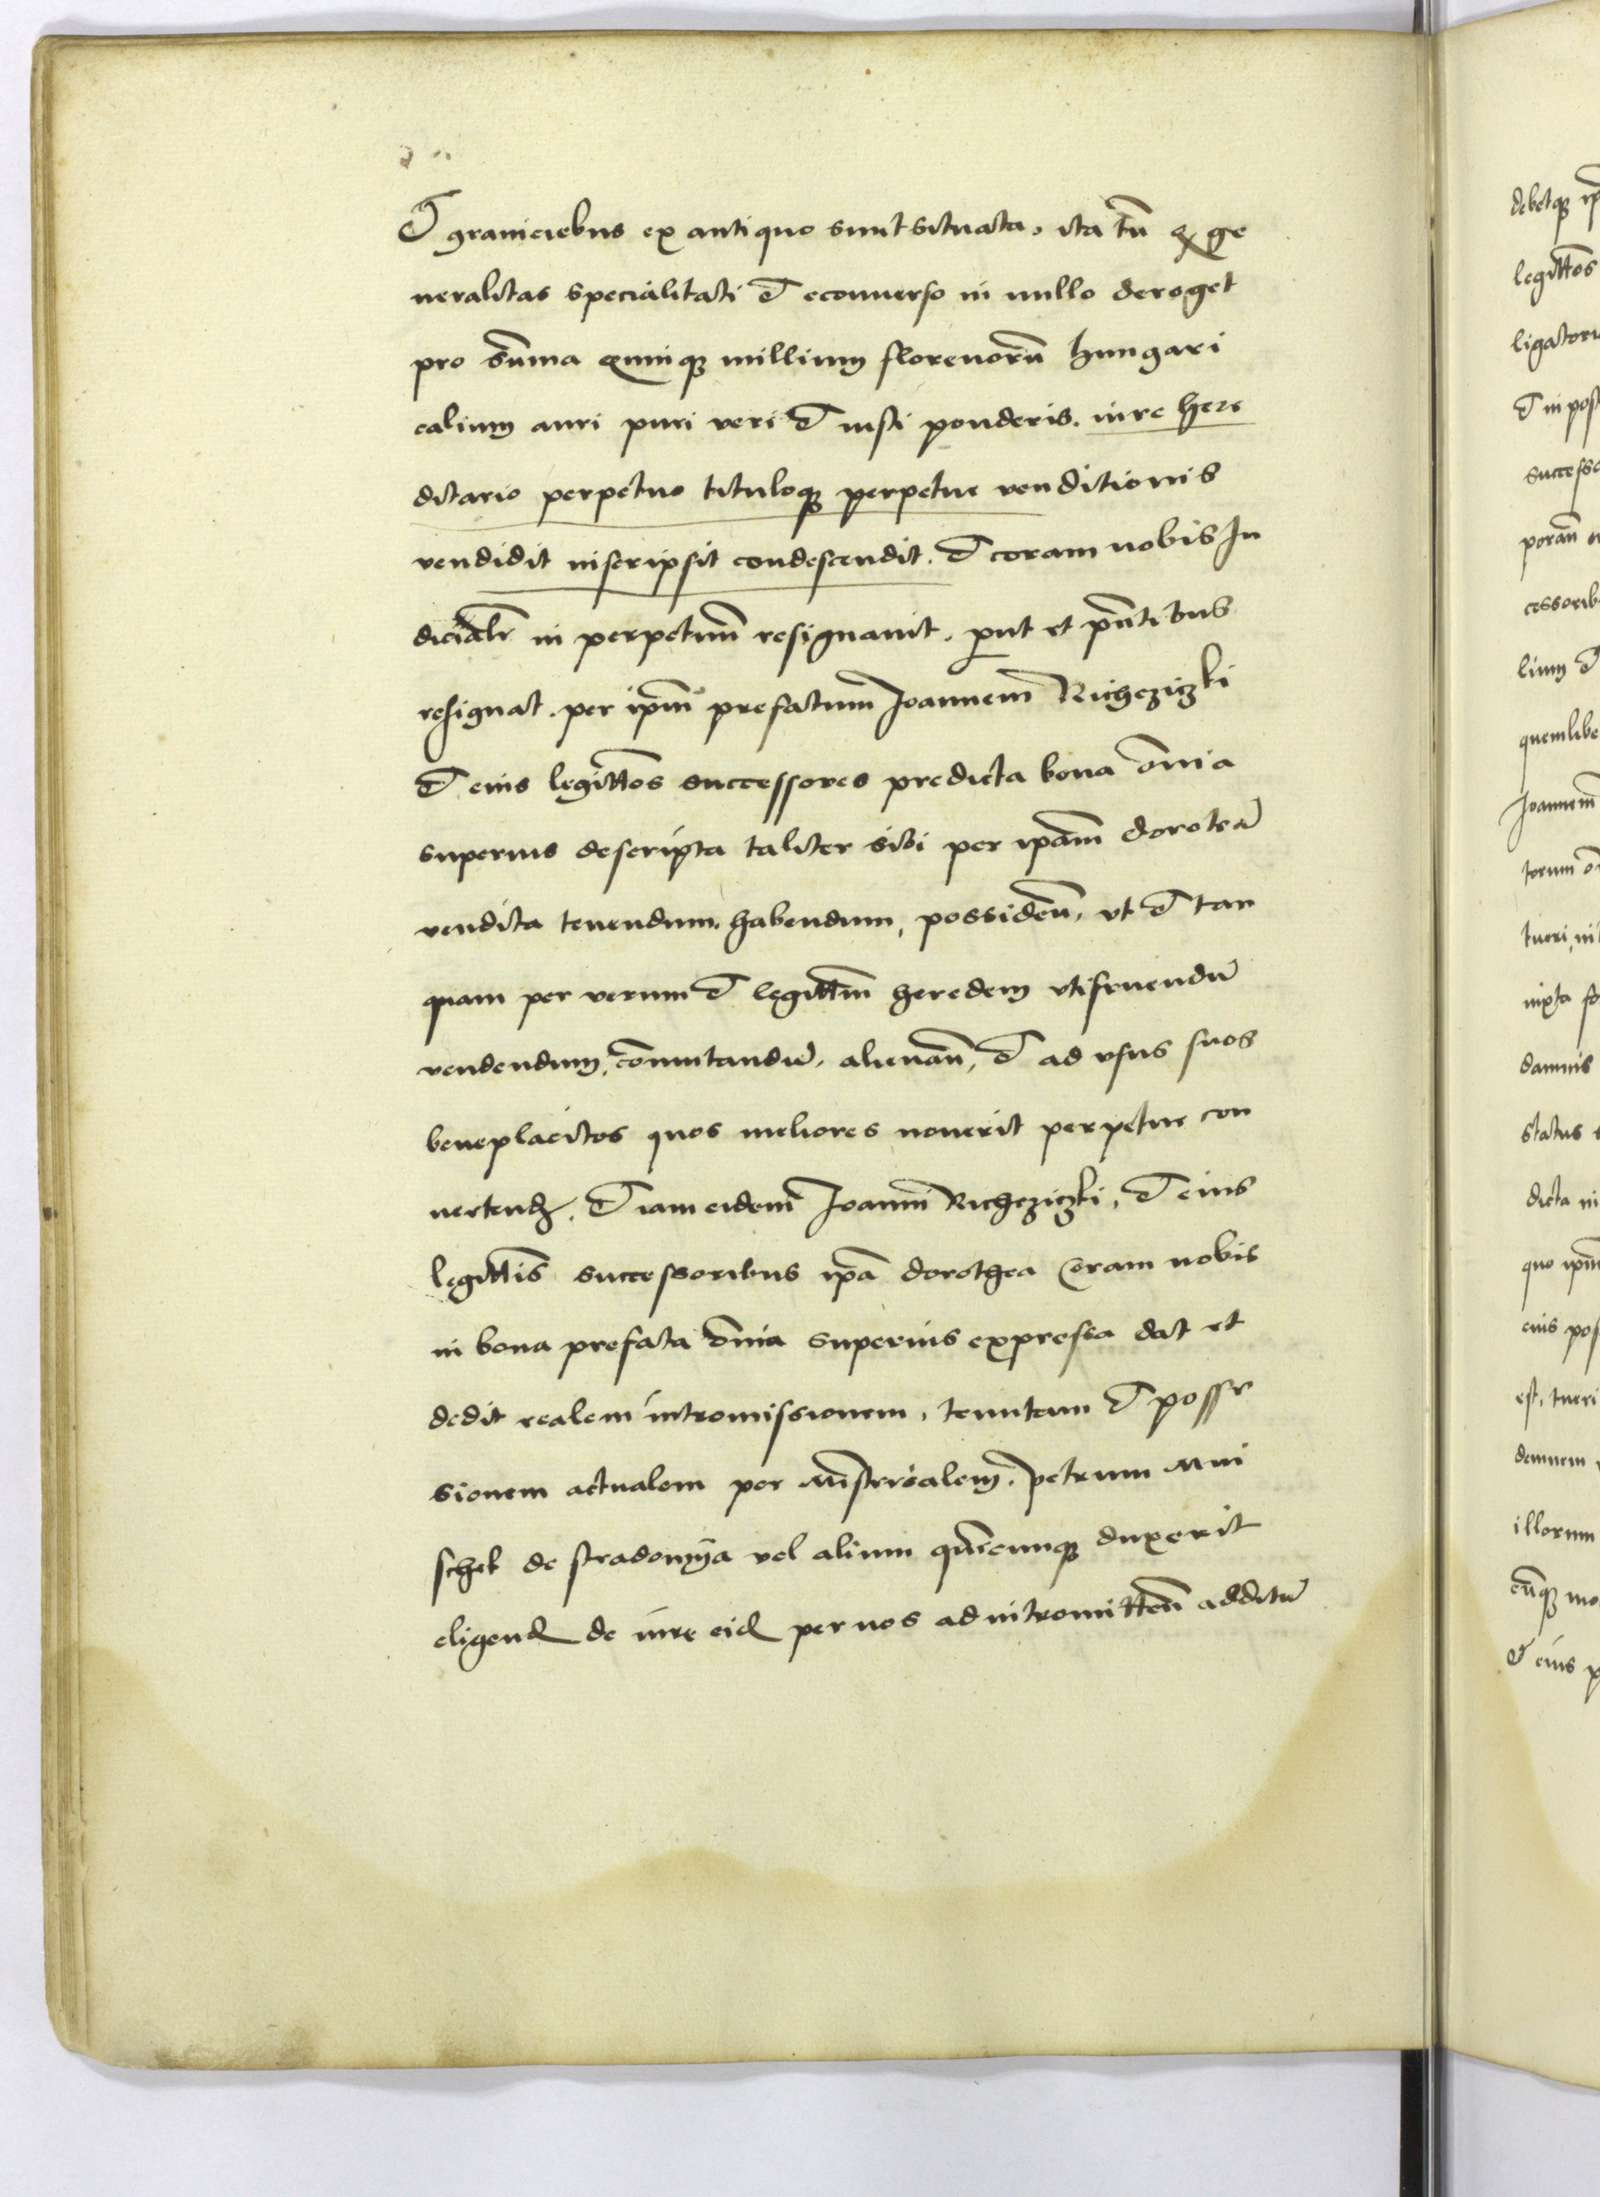 Et graniciebus ex antiquo sunt situata, ita tn̄ ꝙ ge
neralitas specialitati Et econuerso in nullo deroget
pro sūma quinqꝫ millium florenorū hungari
calium auri puri veri Et iusti ponderis. iure here
ditario perpetuo tituloqꝫ perpetue venditionis
vendidit inscripsit condescendit. Et coram nobis Iu
dicialr̄ in perpetuum resignauit, put et pn̄tibus
resignat. per ipm̄ prefatum Joannem Richcziczki
Et eius legittīos successores predicta bona om̄ia
superius descripta taliter sibi per ipam̄ doroteā
vendita tenendum, habendum, possideū, vt Et tan
quam per verum Et legittīm heredem vtifruendū
vendendum, cōmutandū, alienaū, Et ad vsus suos
beneplacitos quos meliores nouerit perpetue con
uertend. Et iam eidem Joanni Richcziczki, Et eius
legittīs successoribus ipā dorothea Coram nobis
in bona prefata om̄ia superius expressa dat et
dedit realem intromissionem, tenutam Et posse
sionem actualem per Mīsterialem, petrum Mni
schek de stradomÿa vel alium quēcunqꝫ duxerit
eligend de iure eid per nos ad intromitteū additū
debetqꝫ
legittos
Et in post
successo
lium Et
quemlibe
Joannem
torum
tueri,
iuxta fo
damnis
status
dicta in
quo ipm̄
eius pos
est, tueri
illorum
Et eius p